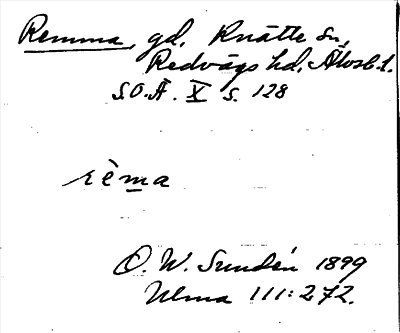 Remma, gd, Knätte sn,
Redvägs hd, Älvsb. l.
S.O.Ä. X s. 128
rèma
O. W. Sundén 1899
Ulma 111:272.